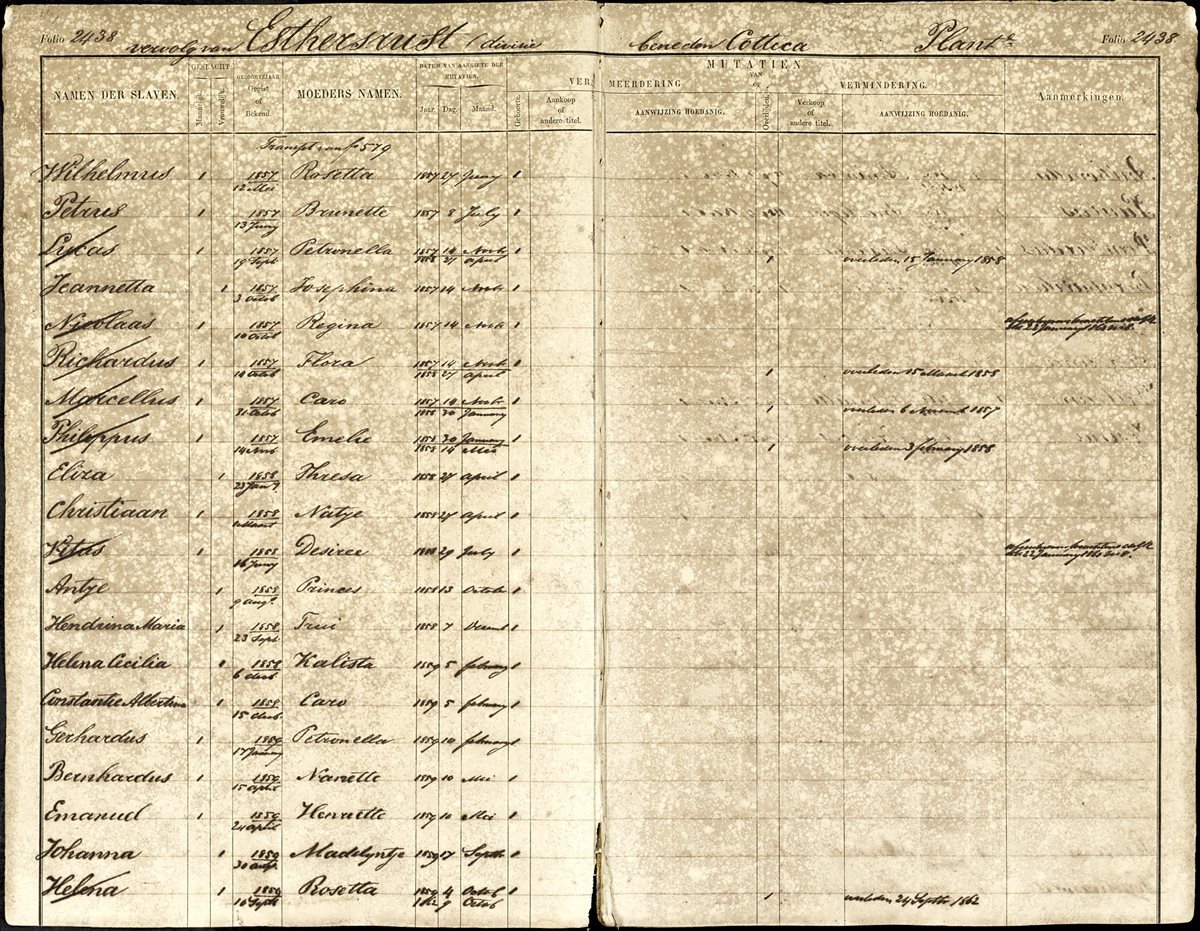 Folio 2438 vervolg van Esthersrust (divisie beneden Cottica Plante Folio 2438
MUTATIEN
GESLACHT. GEBOORTEJAAR DATUM VAN AANGIFTE DER MUTATIEN. VERMEERDERING VAN of VERMINDERING.
NAMEN DER SLAVEN. Mannelijk. Vrouwelijk. Gegist of Bekend. MOEDERS NAMEN. Jaar. Dag. Maand. Geboorte. Aankoop of andere titel. AANWIJZING HOEDANIG. Overlijden. Verkoop of andere titel. AANWIJZING HOEDANIG. Aanmerkingen
Transpt van fo 579
Wilhelmus 1 1857 Rosetta 1857 27 Juny 1
12 Mei
Petrus 1 1857 Brunette 1857 8 July 1
13 Juny
Lucas 1 1857 Petronella 1857 14 Novb 1
19 Sept 1858 27 April 1 overleden 15 January 1858
Jeannetta 1 1857 Josephina 1857 14 Novb 1
3 Octob
Nicolaas 1 1857 Regina 1857 14 Novb 1
10 Octob
Richardus 1 1857 Flora 1857 14 Novb 1
14 Octob 1858 27 April 1 overleden 15 Maart 1858
Marcellus 1 1857 Caro 1857 14 Novb 1
31 Octob 1858 30 January 1 overleden 6 Novemb 1857
Philippus 1 1857 Emelie 1858 30 January 1
14 Novb 1858 14 Mei 1 overleden 3 february 1858
Eliza 1 1858 Thresa 1858 27 April 1
23 Jany
Christiaan 1 1858 Natje 1858 27 April 1
Maart
Vitus 1 1858 Desiree 1858 29 July 1
16 Juny
Antje 1 1858 Princes 1858 13 Octob 1
9 Augt.
Hendrina Maria 1 1858 Trui 1858 7 Decemb 1
23 Sept.
Helena Cecilia 1 1858 Kalista 1859 5 february 1
6 decb.
Constantie Albertina 1 1858 Caro 1859 5 february 1
15 decb.
Gerhardus 1 1859 Petronella 1859 10 february 1
17 January
Bernhardus 1 1859 Nanette 1859 10 Mei 1
15 April
Emanuel 1 1859 Henriette 1859 10 Mei 1
24 april
Johanna 1 1859 Madelyntje 1859 17 Septb 1
30 Aug.
Helena 1 1859 Rosetta 1859 4 Octob 1
16 Septb 1862 9 Octob 1 overleden 24 Septbr 1862